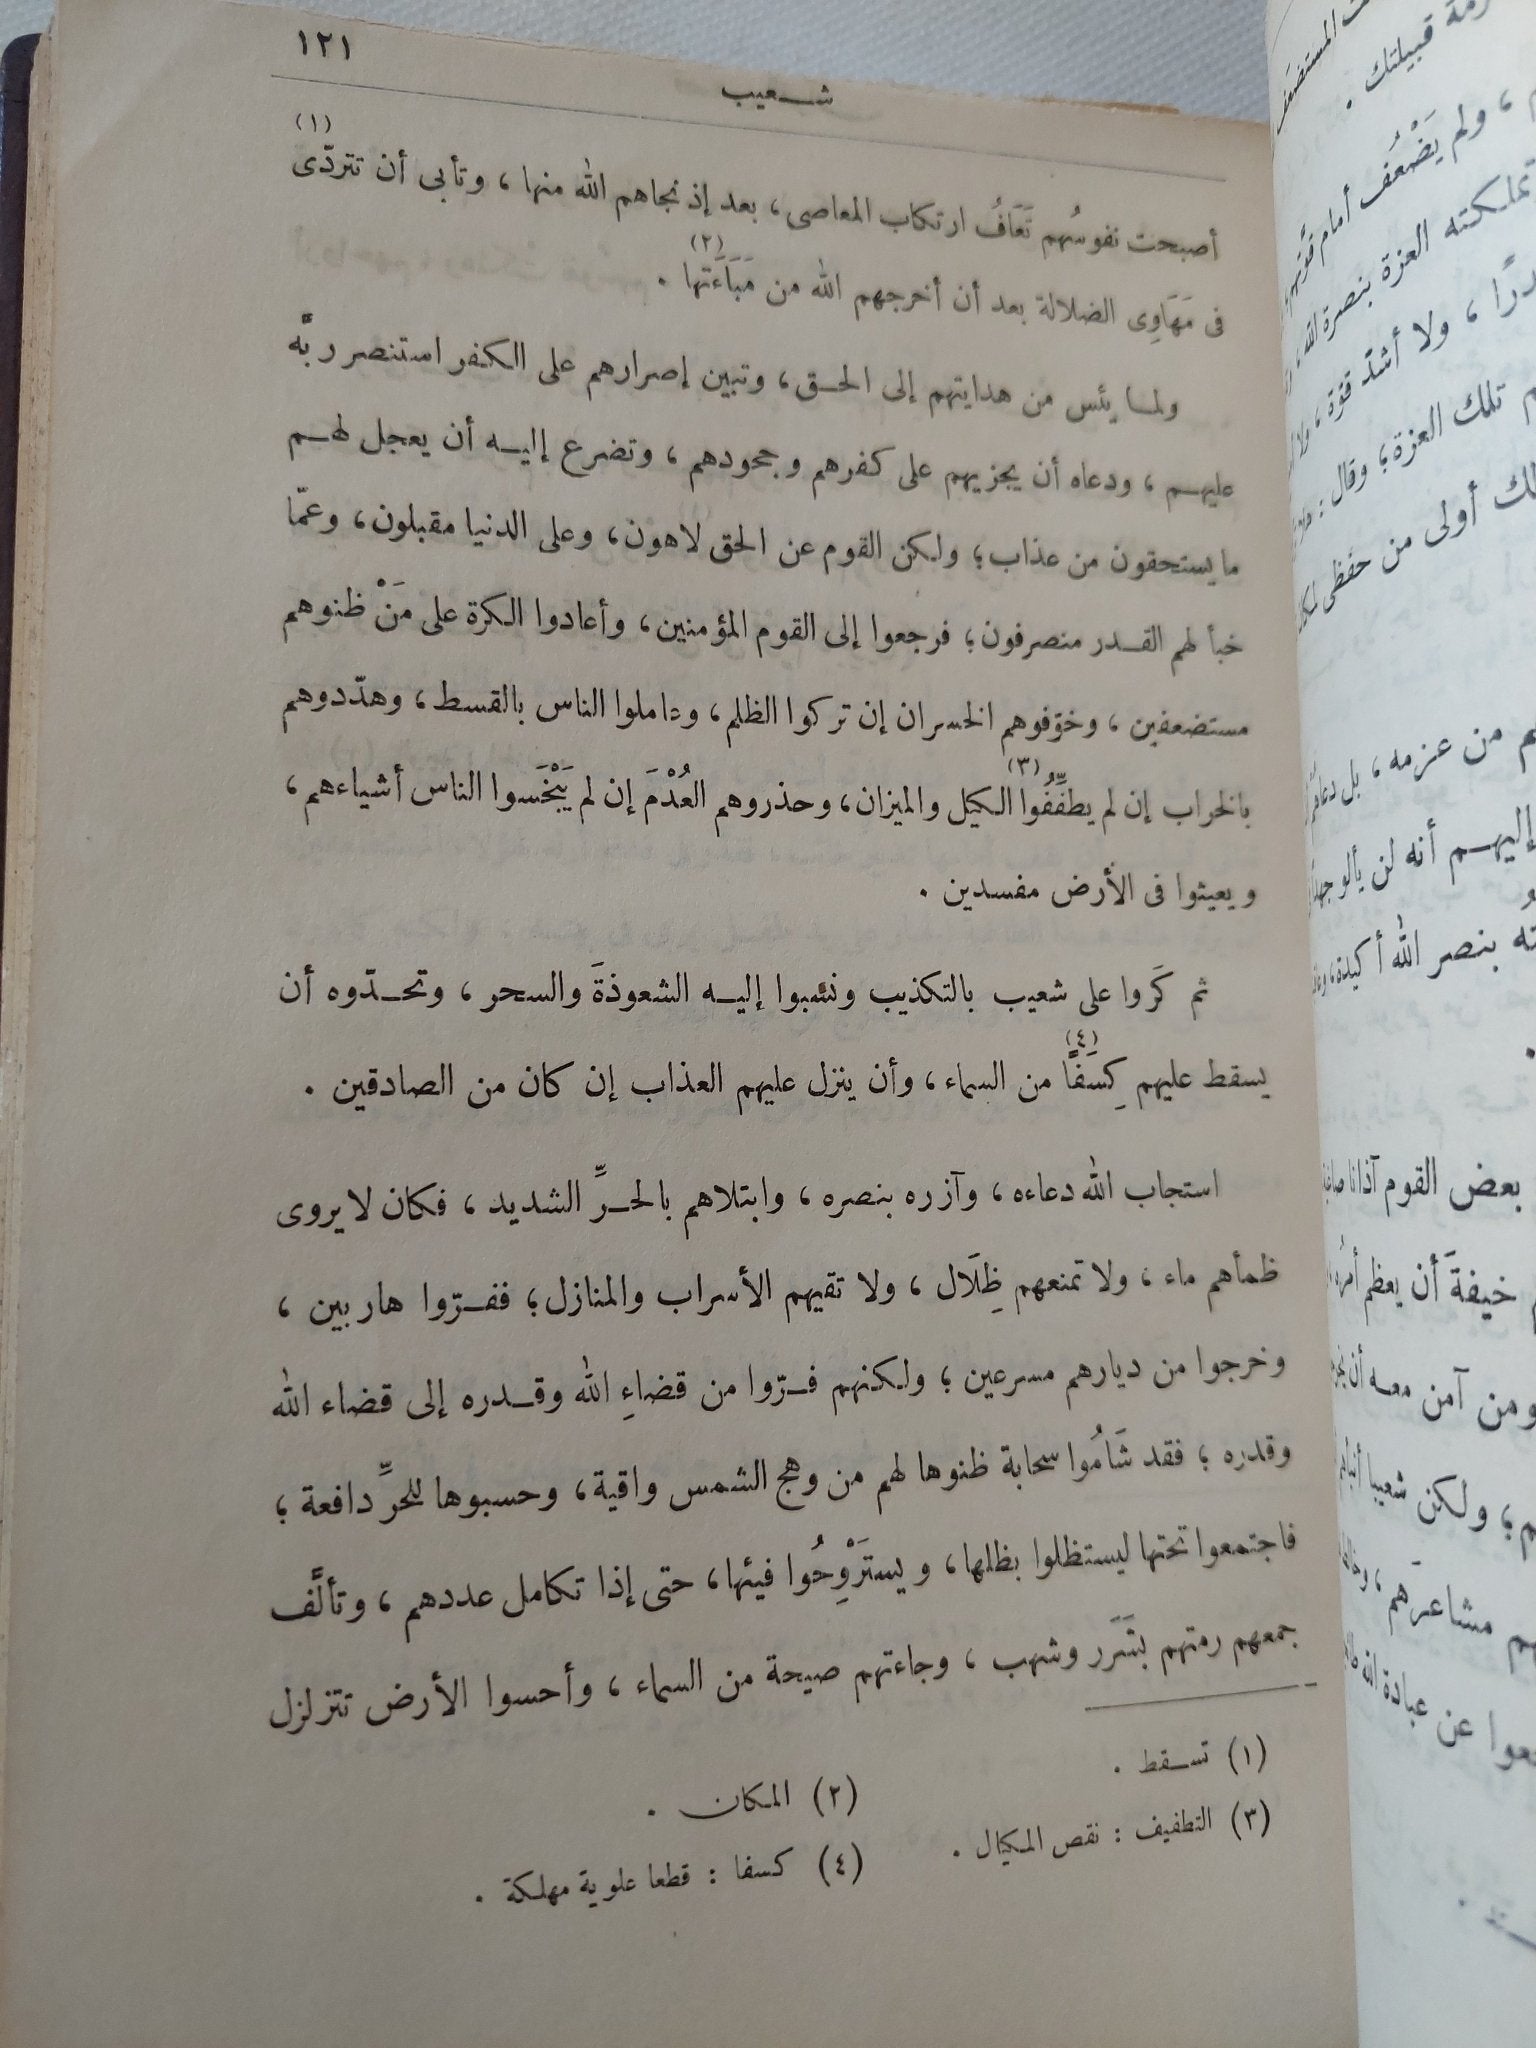 ١٢١
شـعيب
أصبحت نفوسُهم تَعَافُ ارتكاب المعاصى ، بعد إذ نجاهم الله منها ، وتأبى أن تتردّى (١)
فى مَهَاوِى الضلالة بعد أن أخرجهم الله من مَبَاءَتها (٢) .
ولمـا يئس من هدايتهم إلى الحـق ، وتبين إصرارهم على الكفر استنصر ربَّه
عليهـم ، ودعاه أن يجزيهم على كفرهم وجحودهم ، وتضرع إليـه أن يعجل لهـم
ما يستحقون من عذاب ؛ ولكن القوم عن الحق لاهون ، وعلى الدنيا مقبلون ، وعمّا
خبأ لهم القـدر منصرفون ؛ فرجعوا إلى القوم المؤمنين ، وأعادوا الكرة على مَنْ ظنوهم
مستضعفين ، وخوّفوهم الخسران إن تركوا الظلم ، وعاملوا الناس بالقسط ، وهدّدوهم
بالخراب إن لم يطفِّفُوا (٣) الكيل والميزان ، وحذروهم العُدْمَ إن لم يَبْخَسوا الناس أشياءهم ،
ويعيثوا فى الأرض مفسدين .
ثم كَروا على شعيب بالتكذيب ونسبوا إليـه الشعوذةَ والسحر ، وتحـدّوه أن
يسقط عليهم كِسَفًا (٤) من السماء ، وأن ينزل عليهم العذاب إن كان من الصادقين .
استجاب الله دعاءه ، وآزره بنصره ، وابتلاهم بالحـرِّ الشديد ، فكان لا يروى
ظمأهم ماء ، ولا تمنعهم ظِلَال ، ولا تقيهم الأسراب والمنازل ؛ ففـرّوا هاربين ،
وخرجوا من ديارهم مسرعين ؛ ولكنهم فـرّوا من قضاءِ الله وقـدره إلى قضاء الله
وقدره ؛ فقد شَامُوا سحابة ظنوها لهم من وهج الشمس واقية ، وحسبوها للحرِّ دافعة ؛
فاجتمعوا تحتها ليستظلوا بظلها ، ويستَرْوِحُوا فيئها ، حتى إذا تكامل عددهم ، وتألَّف
جمعهم رمتهم بشَرَر وشهب ، وجاءتهم صيحة من السماء ، وأحسوا الأرض تتزلزل
(١) تسـقط .
(٢) المكان .
(٣) التطفيف : نقص المكيال .
(٤) كسفا : قطعا علوية مهلكة .
قبيلتك .
، ولم يَضْعُف أمام قوّتهم
تملكته العزة بنصرة الله
، ولا أشدّ قوّة ، ولا
تلك العزة ؛ وقال :
أولى من حفظى
من عزمه ، بل
إليهـم أنه لن يألو جهدا
بنصر الله أكيدة ،
بعض القوم آذانا
خيفةَ أن يعظم أمره
ومن آمن معـه أن
؛ ولكن شعيبا
مشاعرَهم ،
عن عبادة الله